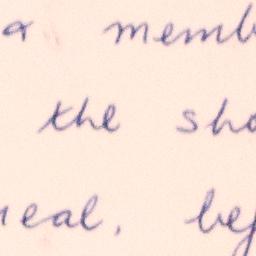 a memb
the sho
eal, bef